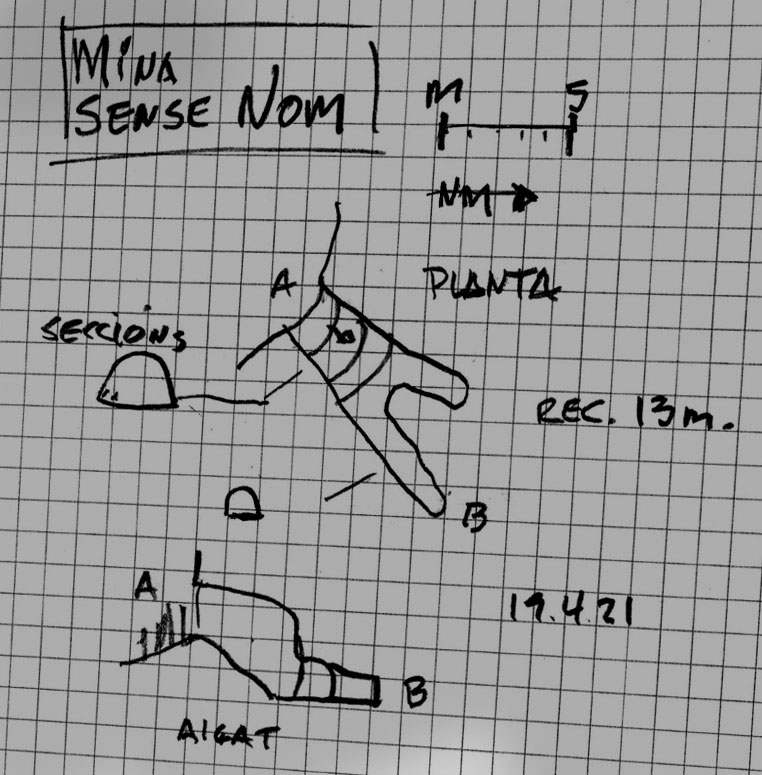 MINA
SENSE NOM
M 5
NM
A
PLANTA
SECCIONS
REC. 13 m.
B
A
19.4.21
B